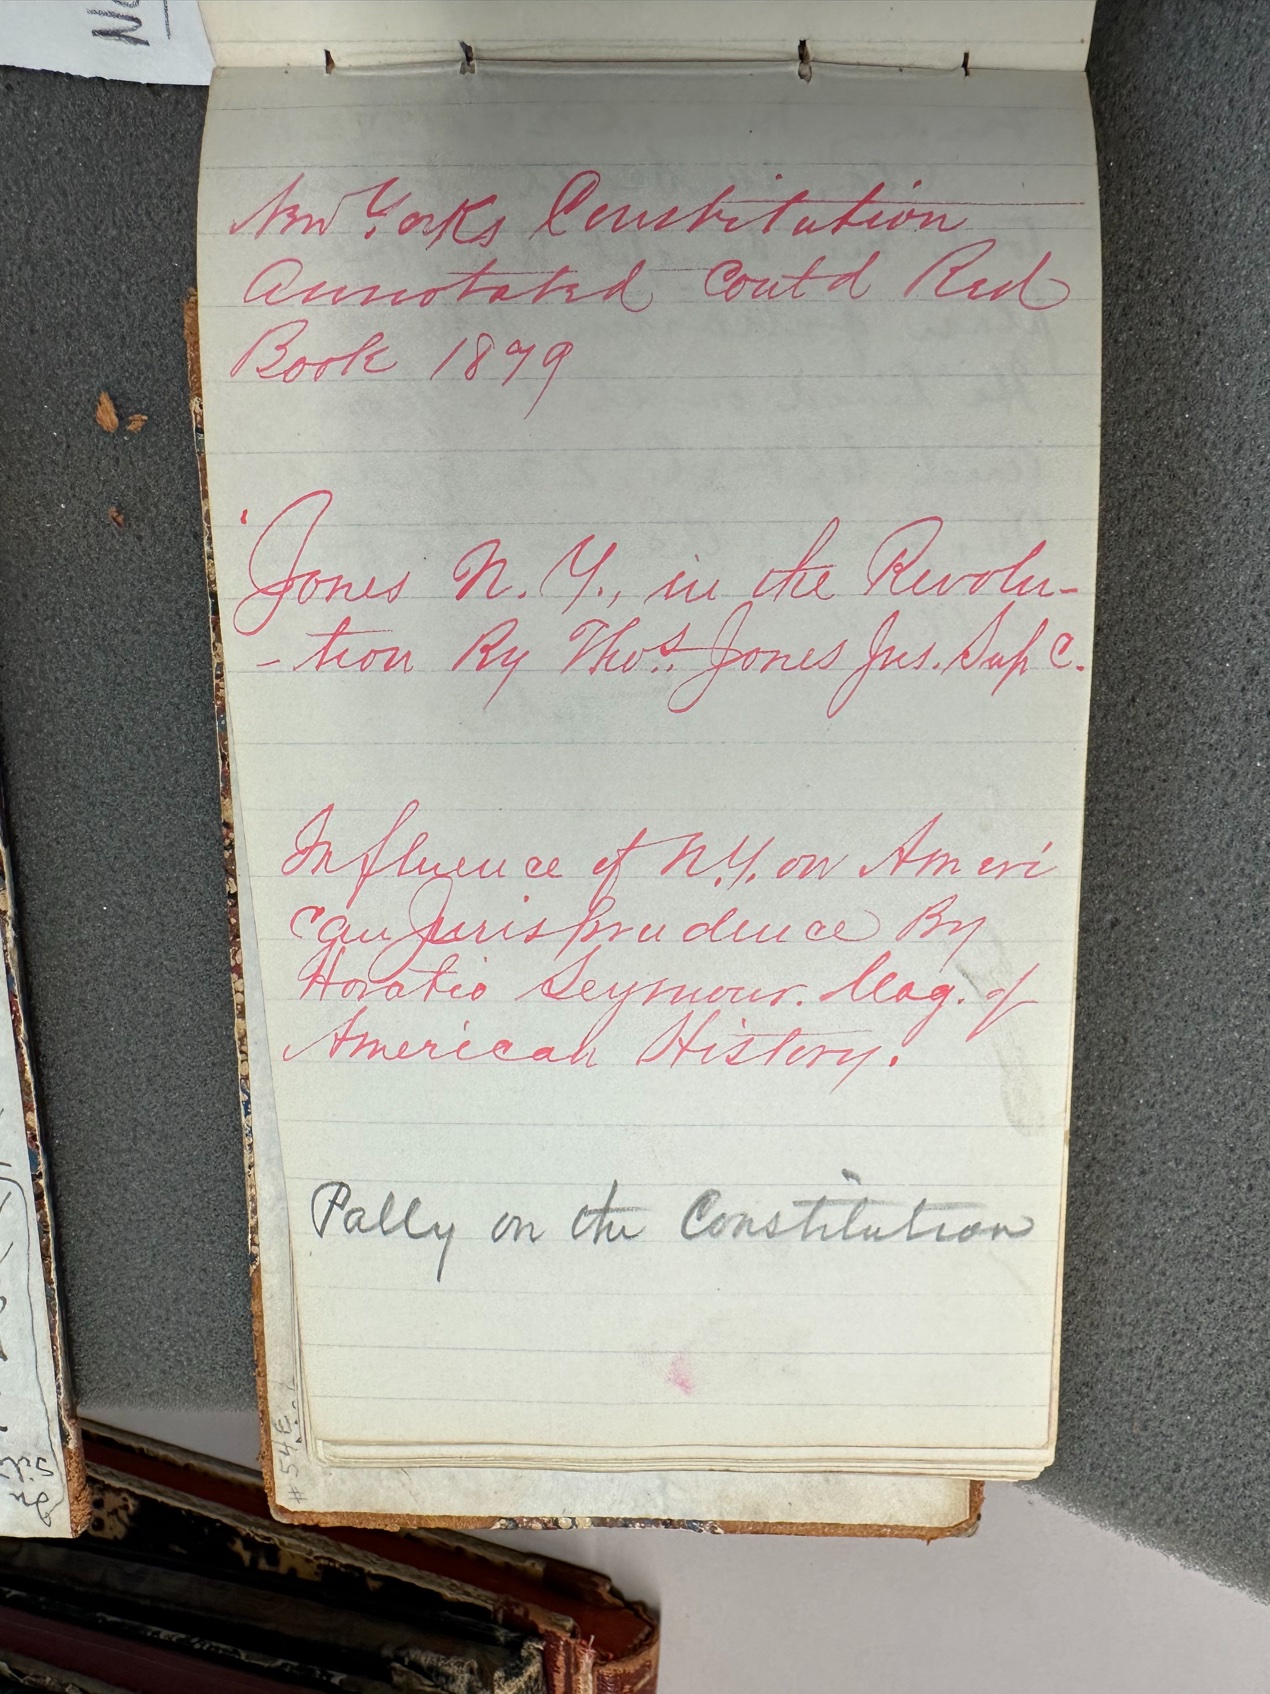 New Yorks Constitution
Annotated Cont'd Red
Book 1879
Jones N. Y., in the Revolu-
-tion By Thos. Jones Jus. Sup C.
Influence of N.Y. on Ameri
can Jurisprudence By
Horatio Seymour. Mag. of
American History.
on the Constitution
# 54 E.